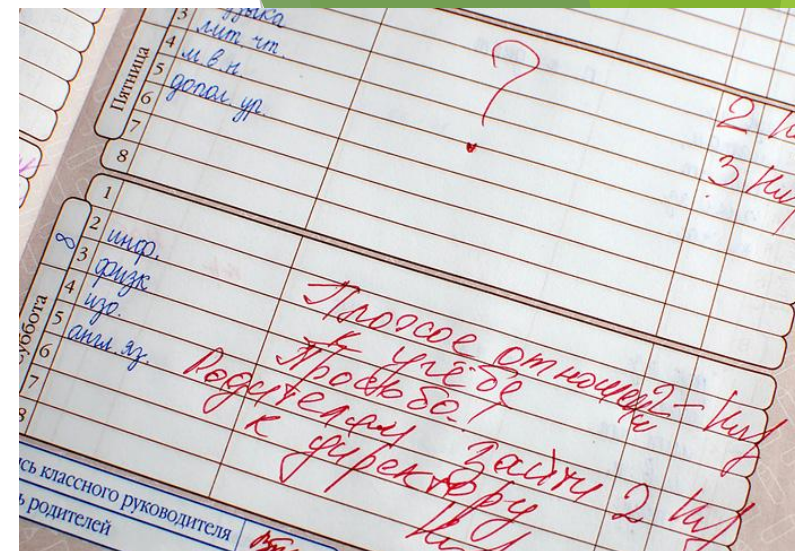 Пятница
3
4 лит. чт.
5 м в н.
6 допол. ур.
7
8
?
2
3
Суббота
1
2 инф.
3 физк
4 изо.
5 англ. яз.
6
7
8
Плохое отношен
к учёбе 2-
Просьба!
Родителям зайти 2
к директору
сь классного руководителя
ь родителей